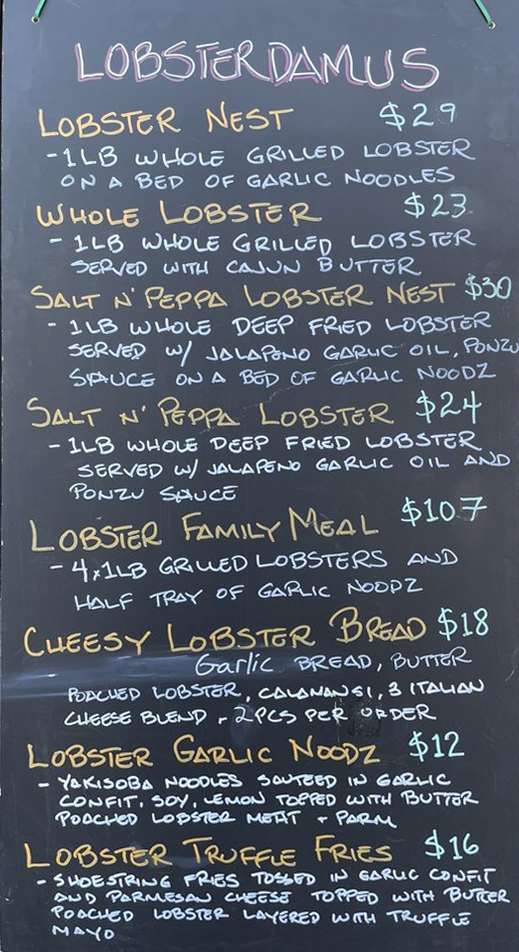 LOBSTERDAMUS
LOBSTER NEST $29
- 1LB WHOLE GRILLED LOBSTER
ON A BED OF GARLIC NOODLES
WHOLE LOBSTER $23
- 1LB WHOLE GRILLED LOBSTER
SERVED WITH CAJUN BUTTER
SALT N' PEPPA LOBSTER NEST $30
- 1LB WHOLE DEEP FRIED LOBSTER
SERVED W/ JALAPENO GARLIC OIL, PONZU
SAUCE ON A BED OF GARLIC NOODZ
SALT N' PEPPA LOBSTER $24
- 1LB WHOLE DEEP FRIED LOBSTER
SERVED W/ JALAPENO GARLIC OIL AND
PONZU SAUCE
LOBSTER FAMILY MEAL $107
- 4x1LB GRILLED LOBSTERS AND
HALF TRAY OF GARLIC NOODZ
CHEESY LOBSTER BREAD $18
Garlic BREAD, BUTTER
POACHED LOBSTER, CALANANSI, 3 ITALIAN
CHEESE BLEND - 2PCS PER ORDER
LOBSTER GARLIC NOODZ $12
- YAKISOBA NOODLES SAUTEED IN GARLIC
CONFIT, SOY, LEMON TOPPED WITH BUTTER
POACHED LOBSTER MEAT + PARM
LOBSTER TRUFFLE FRIES $16
- SHOESTRING FRIES TOSSED IN GARLIC CONFIT
AND PARMESAN CHEESE TOPPED WITH BUTTER
POACHED LOBSTER LAYERED WITH TRUFFLE
MAYO